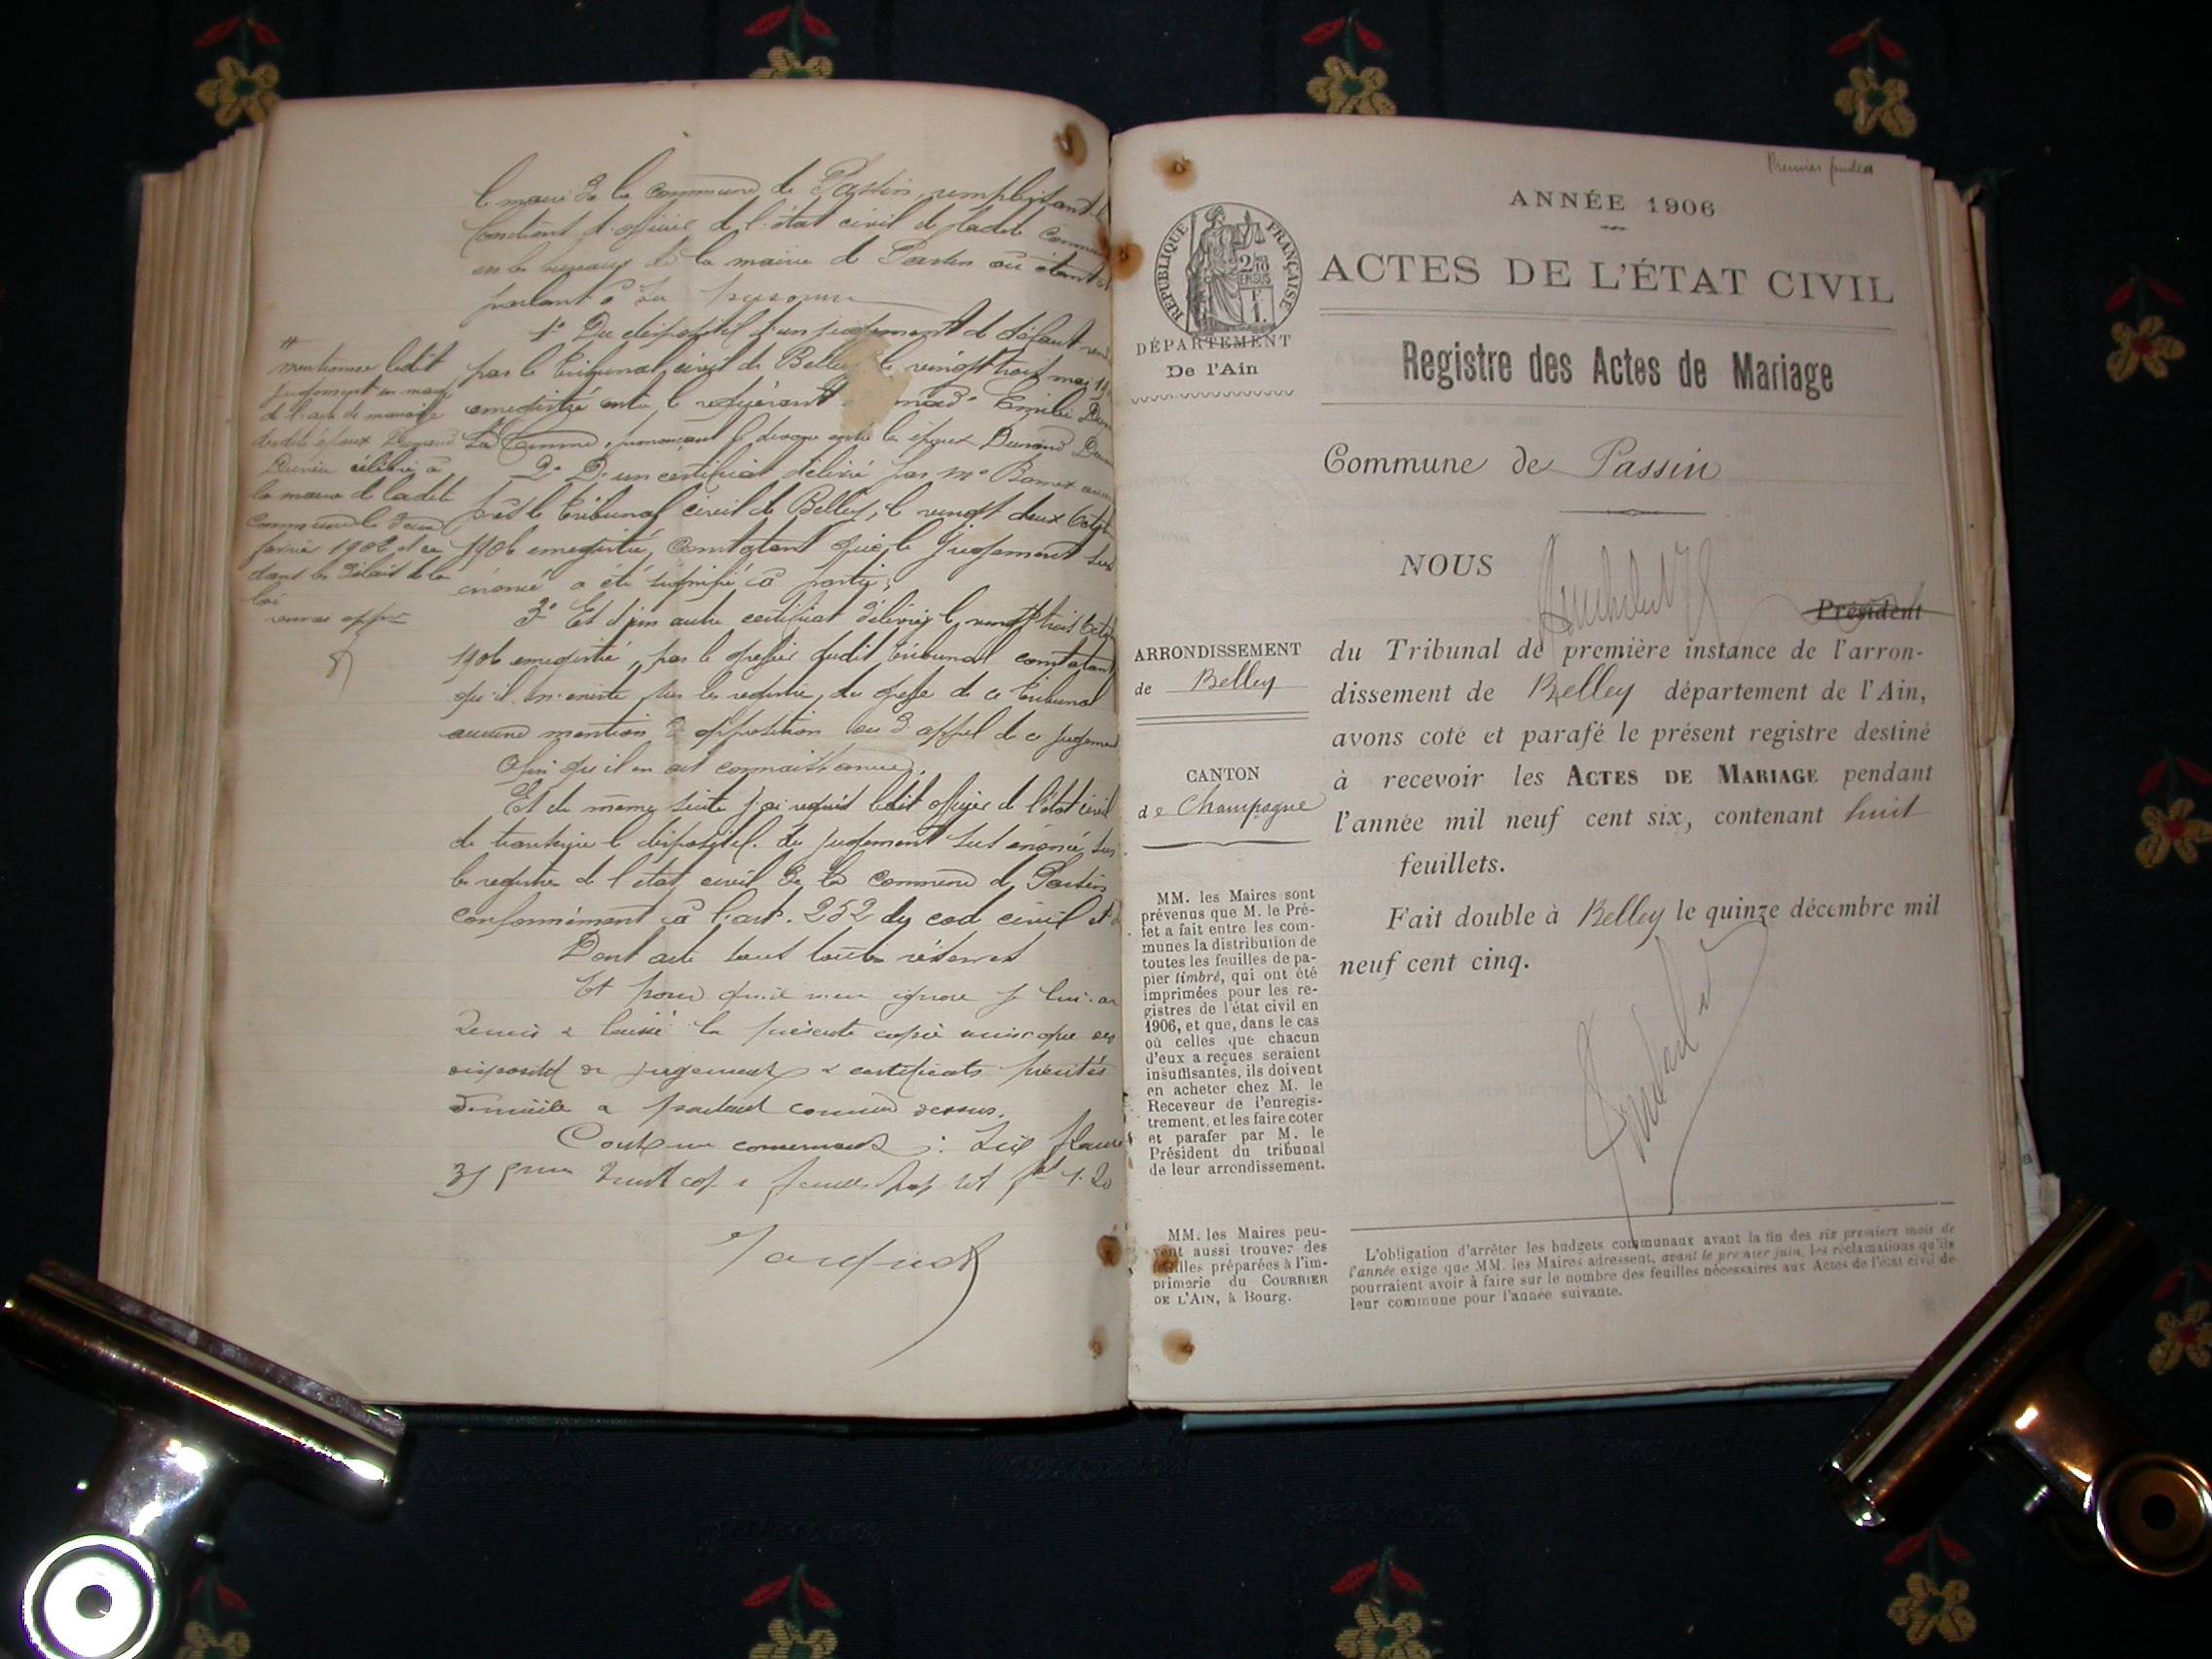 le maire de la commune de Passin, remplissant les
fonctions d'officier de l'état civil de ladite commune
en les bureaux de la mairie de Passin où étant et
parlant à sa personne
1° Du dispositif d'un jugement de défaut rendu
par le tribunal civil de Belley le vingt trois mai 19
enregistré entre le requérant Emilie
sa femme, prononçant le divorce entre les époux Durand
2° D'un certificat délivré par Me avoué
près le tribunal civil de Belley, le vingt deux Octobre
1906 enregistré, constatant que le jugement sus
énoncé a été signifié à partie;
3° Et d'un autre certificat délivré le vingt trois Octobre
1906 enregistré, par le greffier dudit tribunal constatant
qu'il n'existe sur les registres du greffe de ce tribunal
aucune mention d'opposition ou d'appel de ce jugement
Afin qu'il en ait connaissance,
Et de même suite j'ai requis ledit officier de l'état civil
de transcrire le dispositif du jugement sus énoncé sur
les registres de l'état civil de la commune de Passin
conformément à l'art. 252 du code civil et
Dont acte sous toutes réserves
Et pour qu'il n'en ignore je lui ai
remis & laissé la présente copie ainsi que des
dispositif de jugement & certificats précités
domicile & parlant comme dessus.
mentionner ledit
jugement en marge
de l'acte de mariage
desdits époux Durand
célébré à
la mairie de ladite
commune le
février 1902 et ce
dans les délais de la
loi
Premier feuillet
ANNÉE 1906
ACTES DE L'ÉTAT CIVIL
RÉPUBLIQUE FRANÇAISE
DÉPARTEMENT
De l'Ain
Registre des Actes de Mariage
Commune de Passin
NOUS
Président
du Tribunal de première instance de l'arron-
dissement de Belley département de l'Ain,
avons coté et parafé le présent registre destiné
à recevoir les ACTES DE MARIAGE pendant
l'année mil neuf cent six, contenant huit
feuillets.
Fait double à Belley le quinze décembre mil
neuf cent cinq.
ARRONDISSEMENT
de Belley
CANTON
de Champagne
MM. les Maires sont
prévenus que M. le Pré-
fet a fait entre les com-
munes la distribution de
toutes les feuilles de pa-
pier timbré, qui ont été
imprimées pour les re-
gistres de l'état civil en
1906, et que, dans le cas
où celles que chacun
d'eux a reçues seraient
insuffisantes, ils doivent
en acheter chez M. le
Receveur de l'enregis-
trement, et les faire coter
et parafer par M. le
Président du tribunal
de leur arrondissement.
MM. les Maires peu-
vent aussi trouver des
feuilles préparées à l'im-
primerie du COURRIER
DE L'AIN, à Bourg.
L'obligation d'arrêter les budgets communaux avant la fin des six premiers mois de
l'année exige que MM. les Maires adressent, avant le premier juin, les réclamations qu'ils
pourraient avoir à faire sur le nombre des feuilles nécessaires aux Actes de l'état civil de
leur commune pour l'année suivante.